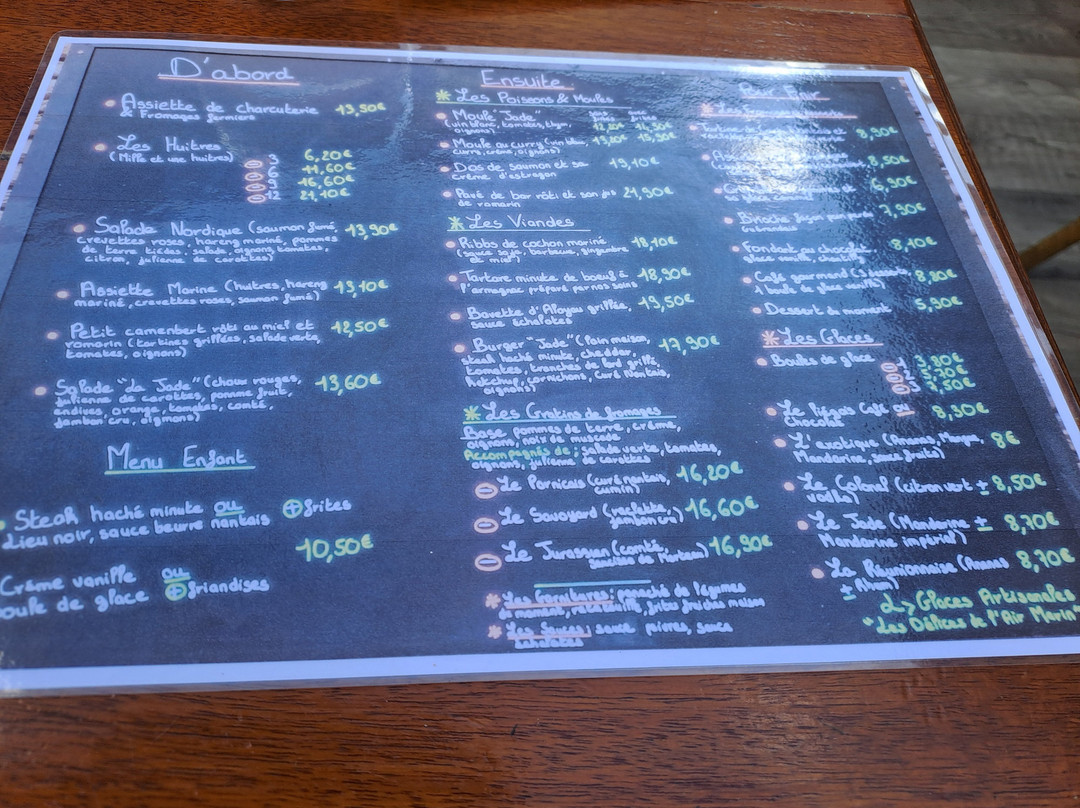 D'abord
Assiette de charcuterie 13,50€
& Fromages fermiers
Les Huitres
(Mille et une huitres)
3 6,20€
6 11,60€
9 16,60€
12 21,10€
Salade Nordique (saumon fumé, 13,90€
crevettes roses, hareng mariné, pommes
de terre tièdes, salade, oignons, tomates,
citron, julienne de carottes)
Assiette Marine (huitres, hareng 13,10€
mariné, crevettes roses, saumon fumé)
Petit camenbert rôti au miel et 12,50€
romarin (tartines grillées, salade verte,
tomates, oignons)
Salade "de Jade" (choux rouges, 13,60€
julienne de carottes, pomme fruit,
endives, orange, tomates, comté,
jambon cru, oignons)
Menu Enfant
Steak haché minute ou + frites
Lieu noir, sauce beurre nantais
10,50€
Crème vanille ou
boule de glace + friandises
Ensuite
* Les Poissons & Moules
Moule "Jade"
(vin blanc, tomates, thym,
oignons)
Moule au curry (vin blanc,
curry, crème, oignons)
Dos de saumon et sa 19,10€
crème d'estragon
Pavé de bar rôti et son jus 21,90€
de romarin
* Les Viandes
Ribbs de cochon mariné 18,10€
(sauce soja, barbecue, gingembre
et miel)
Tartare minute de boeuf à 18,90€
l'armagnac préparé par nos soins
Bavette d'Aloyau grillée, 19,50€
sauce échalotes
Burger "Jade" (Pain maison, 17,90€
steak haché minute, cheddar,
tomates, tranches de lard grillé,
Ketchup, cornichons, Curé Nantais,
oignons)
* Les Gratins de fromages
Base pommes de terre, crème,
oignons, noix de muscade
Accompagnés de ; salade verte, tomates,
oignons, julienne de carottes
Le Pornicais (curé nantais, 16,20€
cumin)
Le Savoyard (raclette, 16,60€
jambon cru)
Le Jurassien (comté, 16,90€
saucisse de Morteau)
* Les Garnitures : panaché de légumes
frites fraiches maison
* Les Sauces ; sauce poivres, sauce
échalotes
8,90€
8,50€
6,90€
Brioche façon pain perdu 7,90€
Fondant au chocolat, 8,10€
glace vanille, chantilly
Café gourmand (3 desserts, 8,80€
1 boule de glace vanille)
Dessert du moment 5,90€
* Les Glaces
Boules de glace
Le liégeois Café ou 8,30€
chocolat
L'exotique (Ananas, Mangue, 8€
Mandarine, sauce fruits)
Le Colonel (citron vert ± 8,50€
vodka)
Le Jade (Mandarine ± 8,70€
Mandarine impérial)
La Réunionnaise (Ananas 8,70€
± Rhum)
↳ Glaces Artisanales
"Les Délices de l'Air Marin"